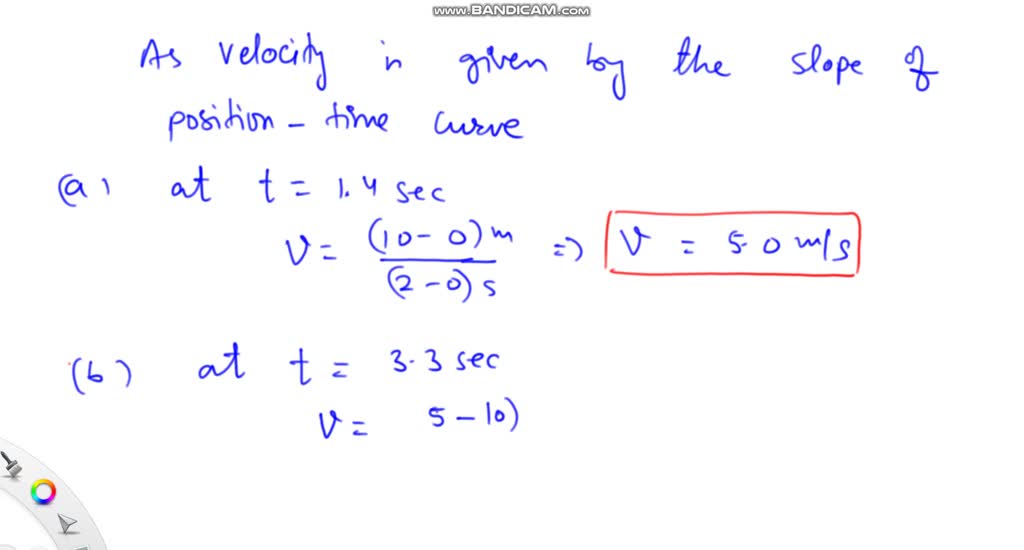 www.BANDICAM.com
As velocity in given by the slope of
position - time curve
(a) at t = 1.4 sec
V = (10 - 0) m / (2 - 0) s => V = 5.0 m/s
(b) at t = 3.3 sec
V = 5 - 10)